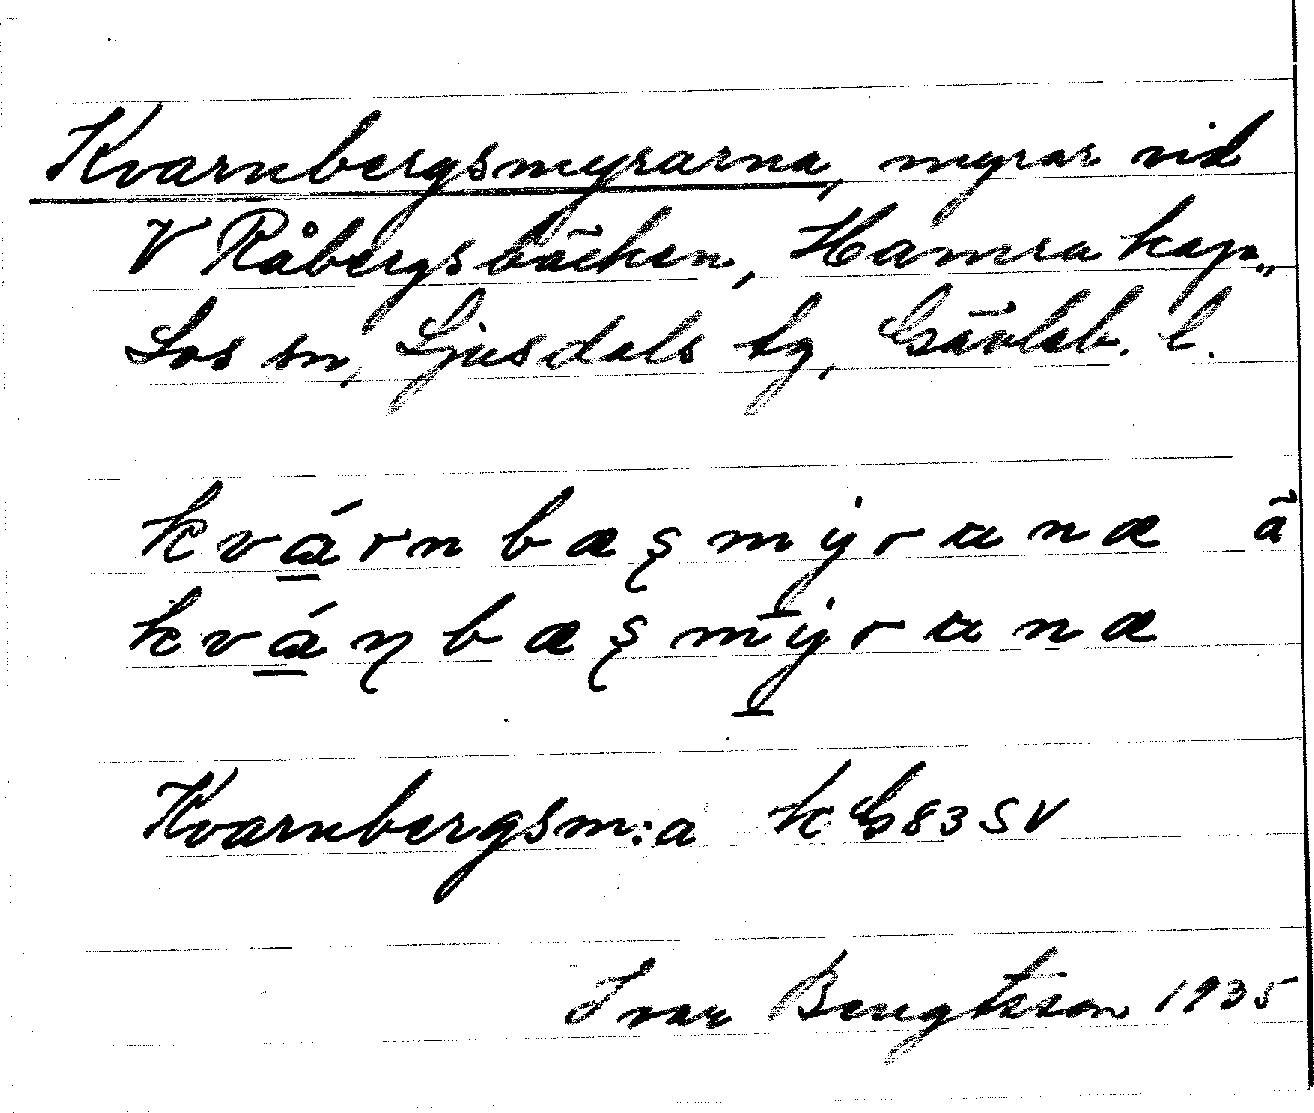 Kvarnbergsmyrarna, myrar vid
V Råbergsbäcken, Hamra kap.,
Los sn, Ljusdals tg, Gävleb. l.
kvárnbæʂmyrɑnæ ä
kváɳbæʂmyrɑnæ
Kvarnbergsm:a kG83SV
Ivar Bengtsson 1935